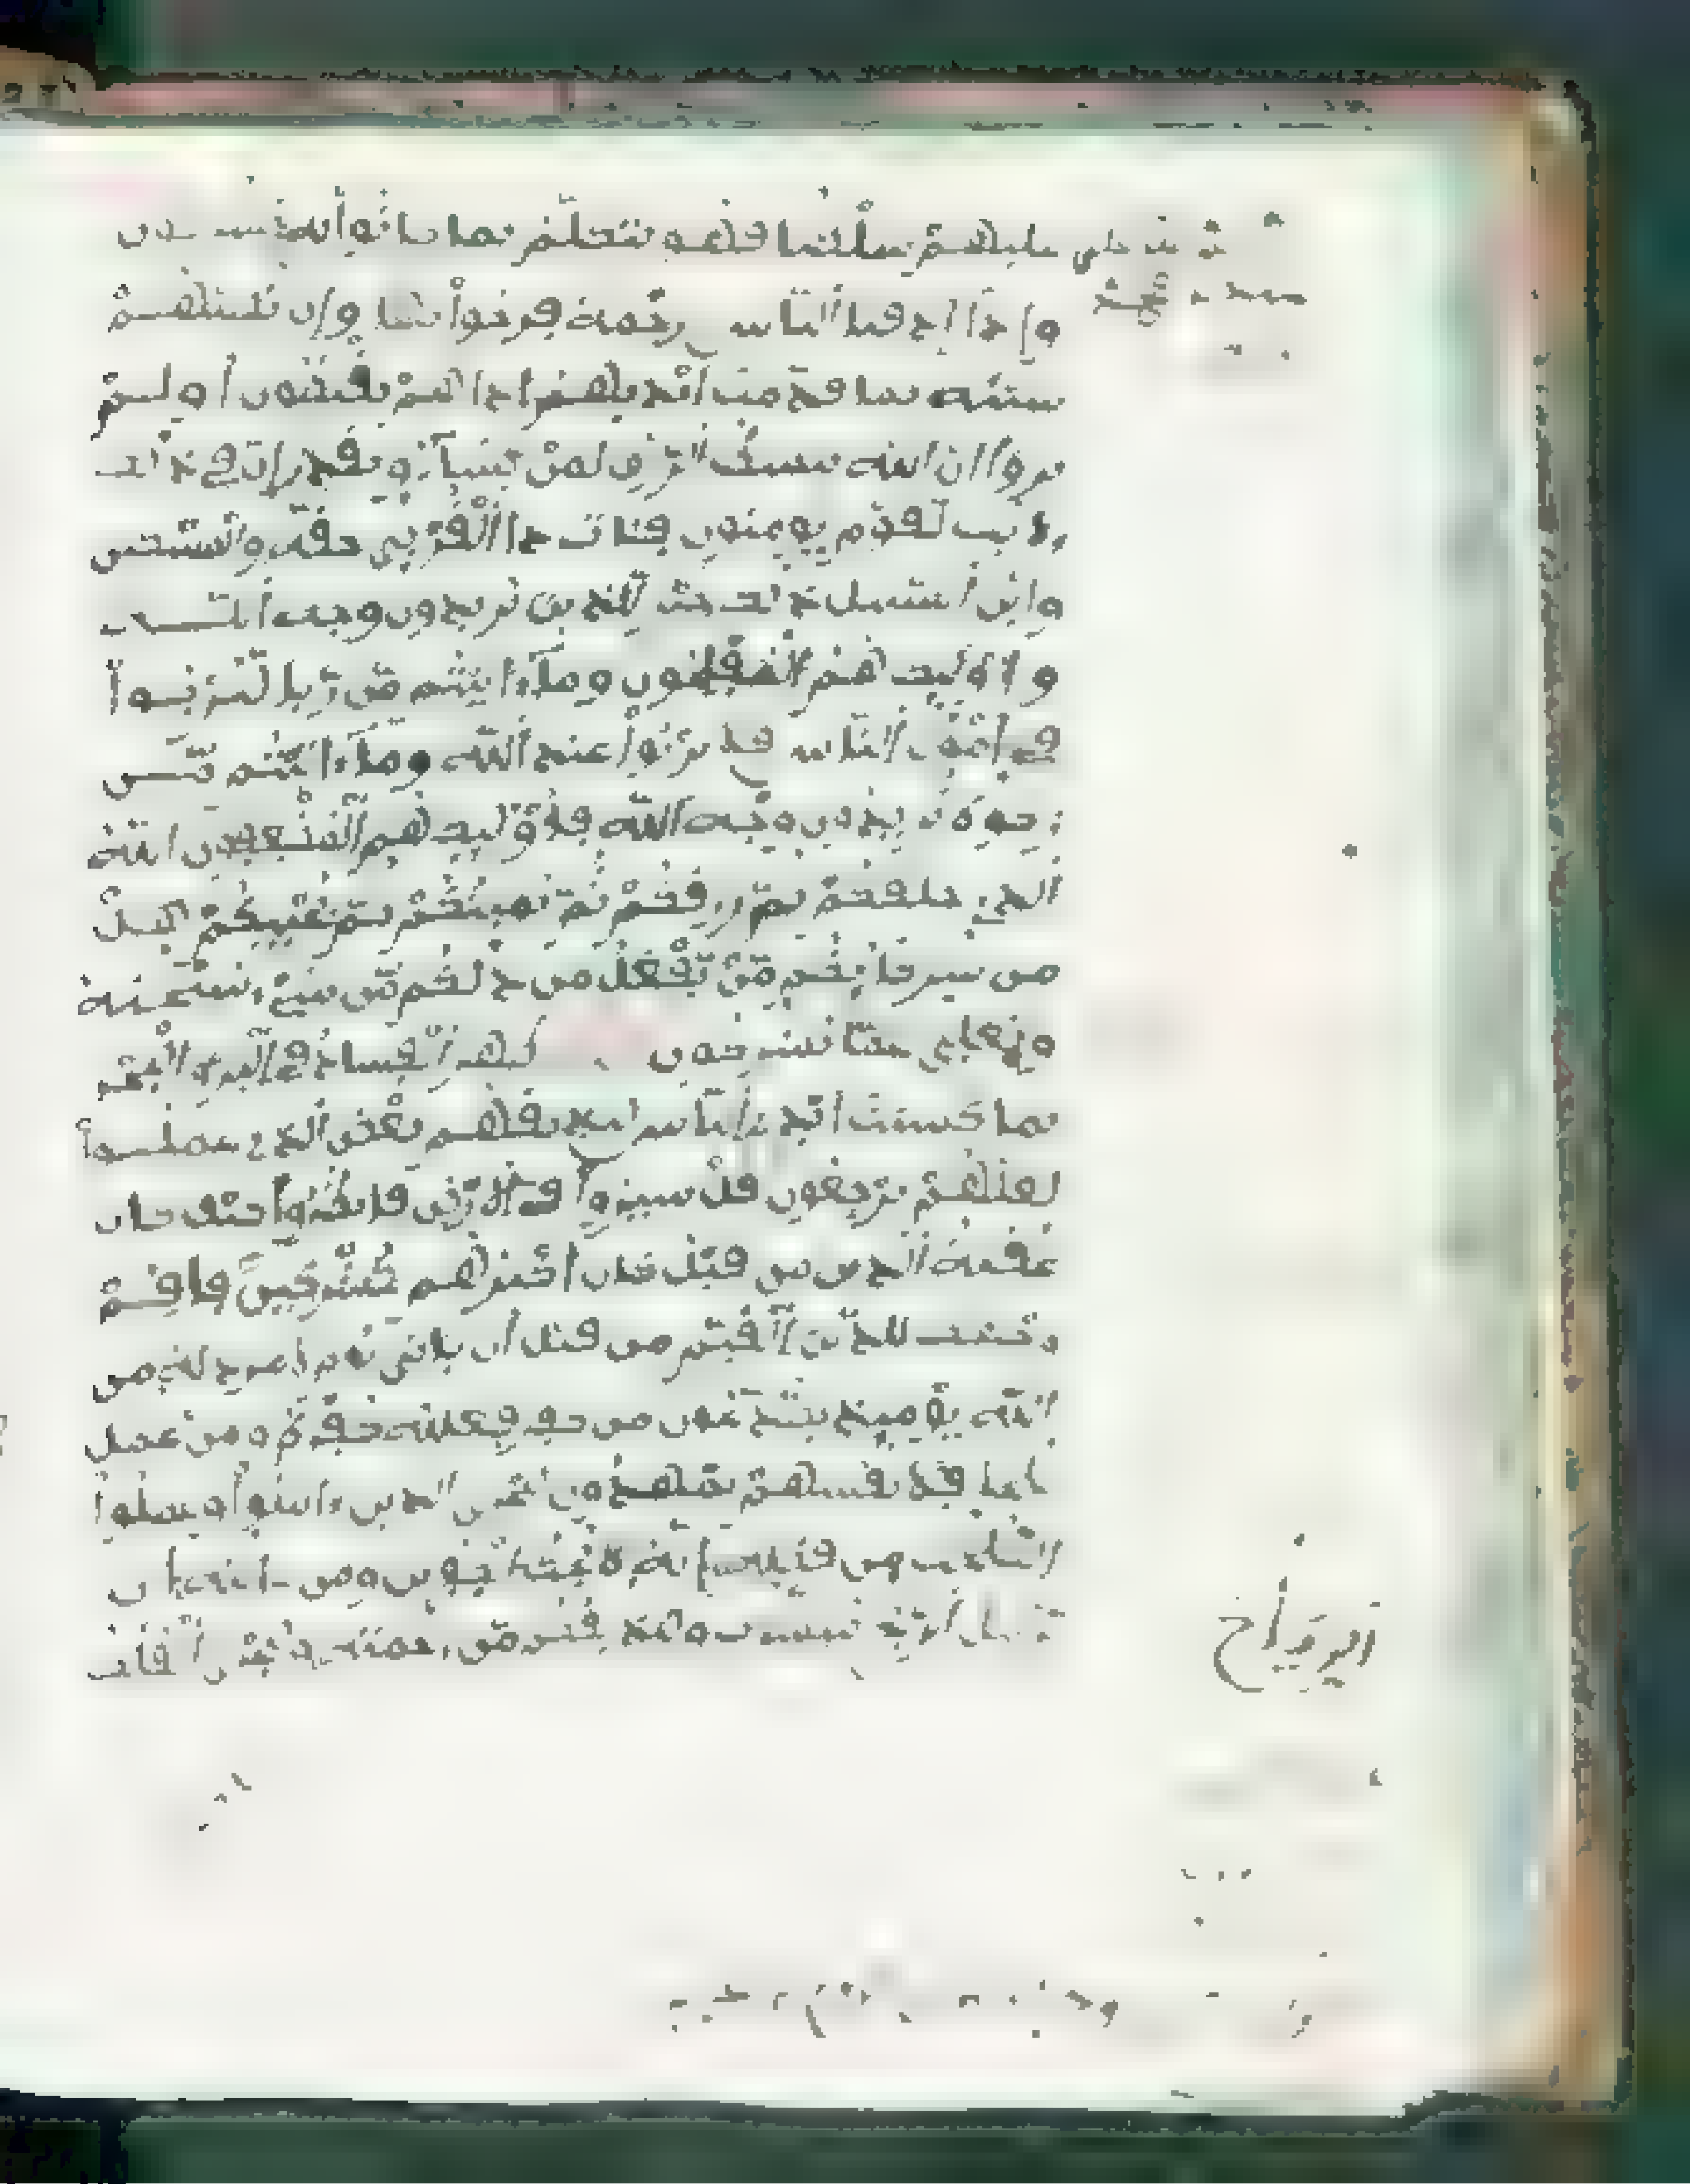 عليهم سلطنا فهو يتكلم بما كانوا به يشركون
وإذا أذقنا الناس رحمة فرحوا بها وإن تصبهم
سيئة بما قدمت أيديهم إذا هم يقنطون أولم
يروا أن الله يبسط الرزق لمن يشآء ويقدر إن في ذلك
لأيت لقوم يومنون فئات ذا القربى حقه والمسكين
وابن السبيل ذلك خير للذين يريدون وجه الله
وأولئك هم المفلحون ومآ ءاتيتم من ربا لتربوا
في أموال الناس فلا يربوا عند الله ومآ ءاتيتم من
زكوة تريدون وجه الله فأولئك هم المضعفون الله
الذي خلقكم ثم رزقكم ثم يميتكم ثم يحييكم هل
من شركائكم من يفعل من ذلكم من شيء سبحنه
وتعلى عما يشركون ظهر الفساد في البر والبحر
بما كسبت أيدي الناس ليذيقهم بعض الذي عملوا
لعلهم يرجعون قل سيروا في الأرض فانظروا كيف كان
عقبة الذين من قبل كان أكثرهم مشركين فأقم
وجهك للدين القيم من قبل أن ياتي يوم لا مرد له من
الله يومئذ يصدعون من كفر فعليه كفره ومن عمل
صلحا فلأنفسهم يمهدون ليجزي الذين ءامنوا وعملوا
الصلحت من فضله إنه لا يحب الكفرين ومن ءايته أن
يرسل الرياح مبشرت وليذيقكم من رحمته ولتجري الفلك